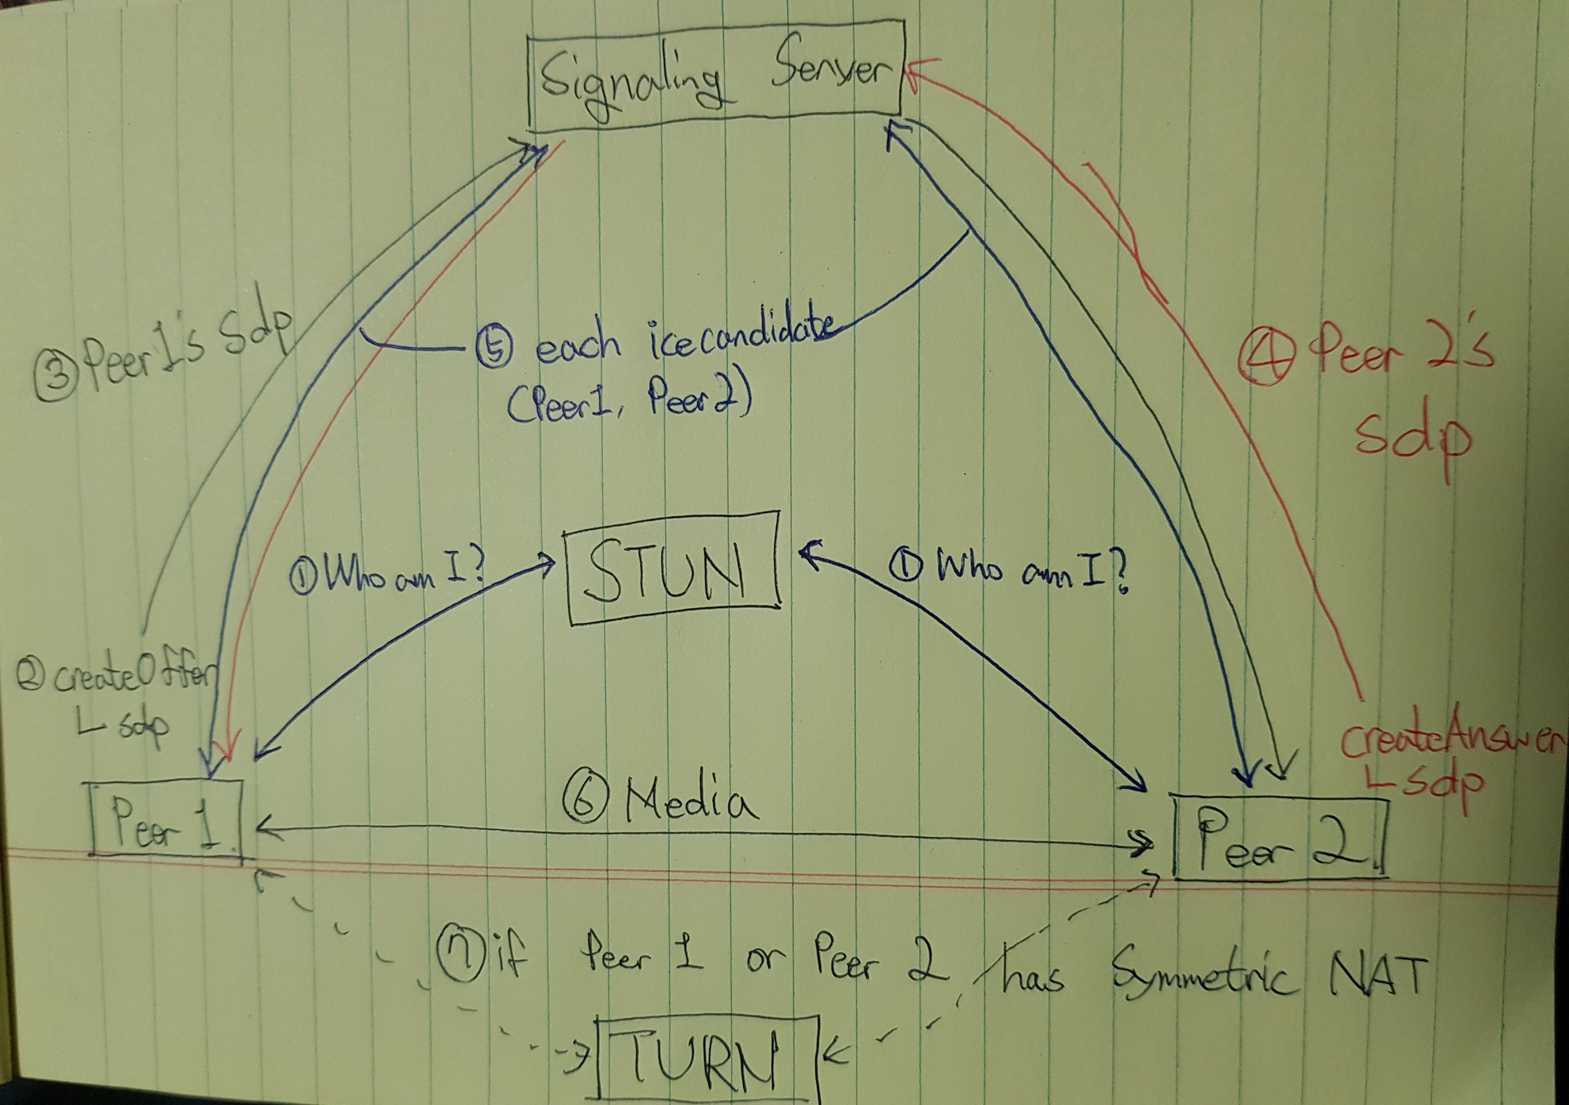 Signaling Server
③ Peer 1's sdp
⑤ each icecandidate
(Peer1, Peer2)
④ Peer 2's
sdp
① Who am I?
STUN
① Who am I?
② createOffer
∟ sdp
createAnswer
∟ sdp
⑥ Media
Peer 1
Peer 2
⑦ if Peer 1 or Peer 2 has Symmetric NAT
TURN